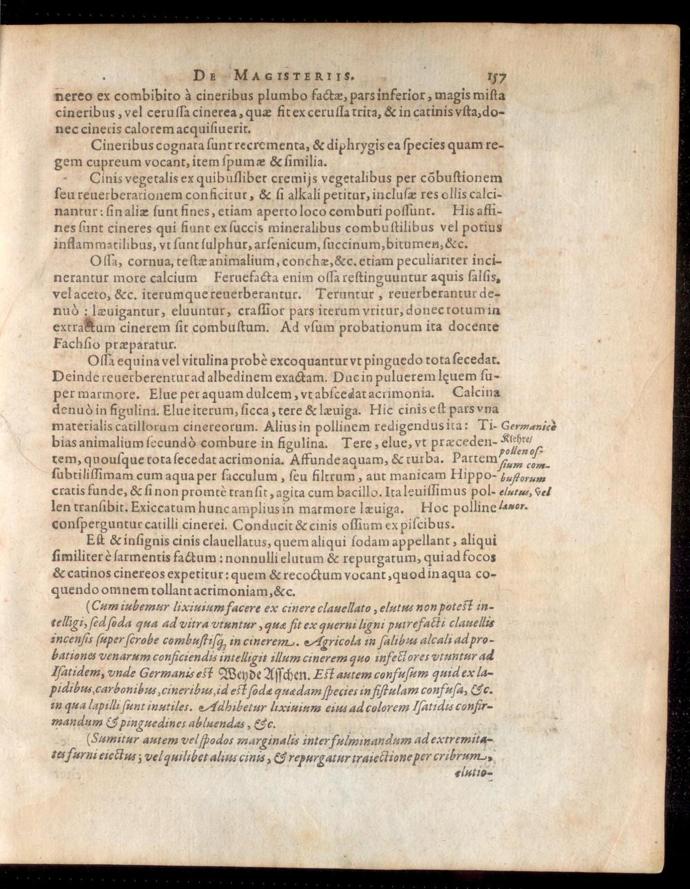 DE MAGISTERIIS. 157
nereo ex combibito à cineribus plumbo factæ, pars inferior, magis mista
cineribus, vel cerussa cinerea, quæ fit ex cerussa trita, & in catinis vsta, do-
nec cineris calorem acquisiuerit.
Cineribus cognata sunt recrementa, & diphrygis ea species quam re-
gem cupreum vocant, item spumæ & similia.
Cinis vegetalis ex quibuslibet cremijs vegetalibus per cõbustionem
seu reuerberationem conficitur, & si alkali petitur, inclusæ res ollis calci-
nantur: sin aliæ sunt fines, etiam aperto loco comburi possunt. His affi-
nes sunt cineres qui fiunt ex succis mineralibus combustilibus vel potius
inflammatilibus, vt sunt sulphur, arsenicum, succinum, bitumen, &c.
Ossa, cornua, testæ animalium, conchæ, &c. etiam peculiariter inci-
nerantur more calcium Feruefacta enim ossa restinguuntur aquis salsis,
vel aceto, &c. iterumque reuerberantur. Teruntur, reuerberantur de-
nuò: læuigantur, eluuntur, crassior pars iterum vritur, donec totum in
extractum cinerem sit combustum. Ad vsum probationum ita docente
Fachsio præparatur.
Ossa equina vel vitulina probè excoquantur vt pinguedo tota secedat.
Deinde reuerberentur ad albedinem exactam. Duc in puluerem lęuem su-
per marmore. Elue per aquam dulcem, vt abscedat acrimonia. Calcina
denuò in figulina. Elue iterum, sicca, tere & læuiga. Hic cinis est pars vna
materialis catillorum cinereorum. Alius in pollinem redigendus ita: Ti-
bias animalium secundò combure in figulina. Tere, elue, vt præceden-
tem, quousque tota secedat acrimonia. Affunde aquam, & turba. Partem
subtilissimam cum aqua per sacculum, seu filtrum, aut manicam Hippo-
cratis funde, & si non promtè transit, agita cum bacillo. Ita leuissimus pol-
len transibit. Exiccatum hunc amplius in marmore læuiga. Hoc polline
consperguntur catilli cinerei. Conducit & cinis ossium ex piscibus.
Germanicè
Klehre/
pollen os-
sium com-
bustorum
elutus, vel
lauor.
Est & insignis cinis clauellatus, quem aliqui sodam appellant, aliqui
similiter è sarmentis factum: nonnulli elutum & repurgatum, qui ad focos
& catinos cinereos expetitur: quem & recoctum vocant, quod in aqua co-
quendo omnem tollant acrimoniam, &c.
(Cum iubemur lixiuium facere ex cinere clauellato, elutus non potest in-
telligi, sed soda qua ad vitra vtuntur, quæ fit ex querni ligni putrefacti clauellis
incensis super scrobe combustisq́; in cinerem. Agricola in salibus alcali ad pro-
bationes venarum conficiendis intelligit illum cinerem quo infectores vtuntur ad
Isatidem, vnde Germanis est Weyde Asschen. Est autem confusum quid ex la-
pidibus, carbonibus, cineribus, id est sodæ quædam species in fistulam confusa, &c.
in qua lapilli sunt inutiles. Adhibetur lixiuium eius ad colorem Isatidis confir-
mandum & pinguedines abluendas, &c.
(Sumitur autem vel spodos marginalis inter fulminandum ad extremita-
tes furni eiectus; vel quilibet alius cinis, & repurgatur traiectione per cribrum,
elutio-